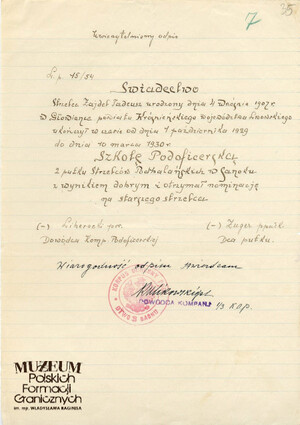 7 35
Uwierzytelniony odpis
L.p. 15/34
Świadectwo
Strzelec Zajdel Tadeusz urodzony dnia 4 sierpnia 1907 r
w powiatu Krośnieńskiego województwa Lwowskiego
ukończył w czasie od dnia 1 października 1929
do dnia 10 marca 1930 r
Szkołę Podoficerską
2 pułku Strzelców Podhalańskich w Sanoku
z wynikiem dobrym i otrzymał nominację
na starszego strzelca
(-) por. (-) ppułk
Dowódca Komp. Podoficerskiej Dca pułku.
Wiarogodność odpisu stwierdzam
DOWÓDCA KOMPANJI 1/3 K.O.P.
MUZEUM
Polskich
Formacji
Granicznych
im. mjr. WŁADYSŁAWA RAGINISA